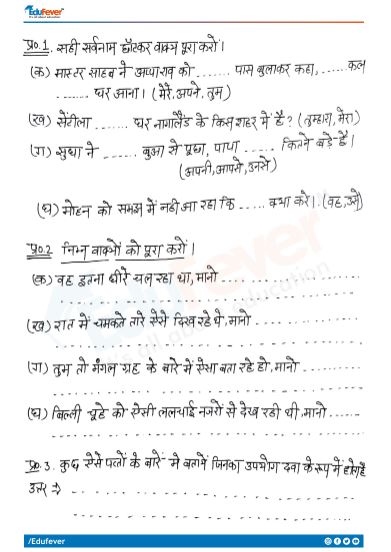 Edufever
प्र०.1. सही सर्वनाम छाँटकर वाक्य पूरा करों।
(क) मास्टर साहब ने अप्पाराव को ....... पास बुलाकर कहा, ...... कल
...... घर आना। (मेरे, अपने, तुम)
(ख) सेंतीला ...... घर नागालैंड के किस शहर में है? (तुम्हारा, मेरा)
(ग) सुधा ने ...... बुआ से पूछा, पापा ..... कितने बड़े हैं।
(अपनी, आपसे, उनसे)
(घ) मोहन को समझ में नही आ रहा कि ..... क्या करे। (वह, उसे)
प्र०.2 निम्न वाक्यों को पूरा करों।
(क) वह इतना धीरे चल रहा था, मानो ....................
(ख) रात में चमकते तारे ऐसे दिख रहे थे, मानो ................
(ग) तुम तो मंगल ग्रह के बारे में ऐसा बता रहे हो, मानो .........
(घ) बिल्ली चूहे को ऐसी ललचाई नजरों से देख रही थी, मानो .......
प्र०. 3. कुछ ऐसे पत्तों के बारे में बतायें जिनका उपयोग दवा के रूप में होता है
उत्तर ⇒ ....................
/Edufever